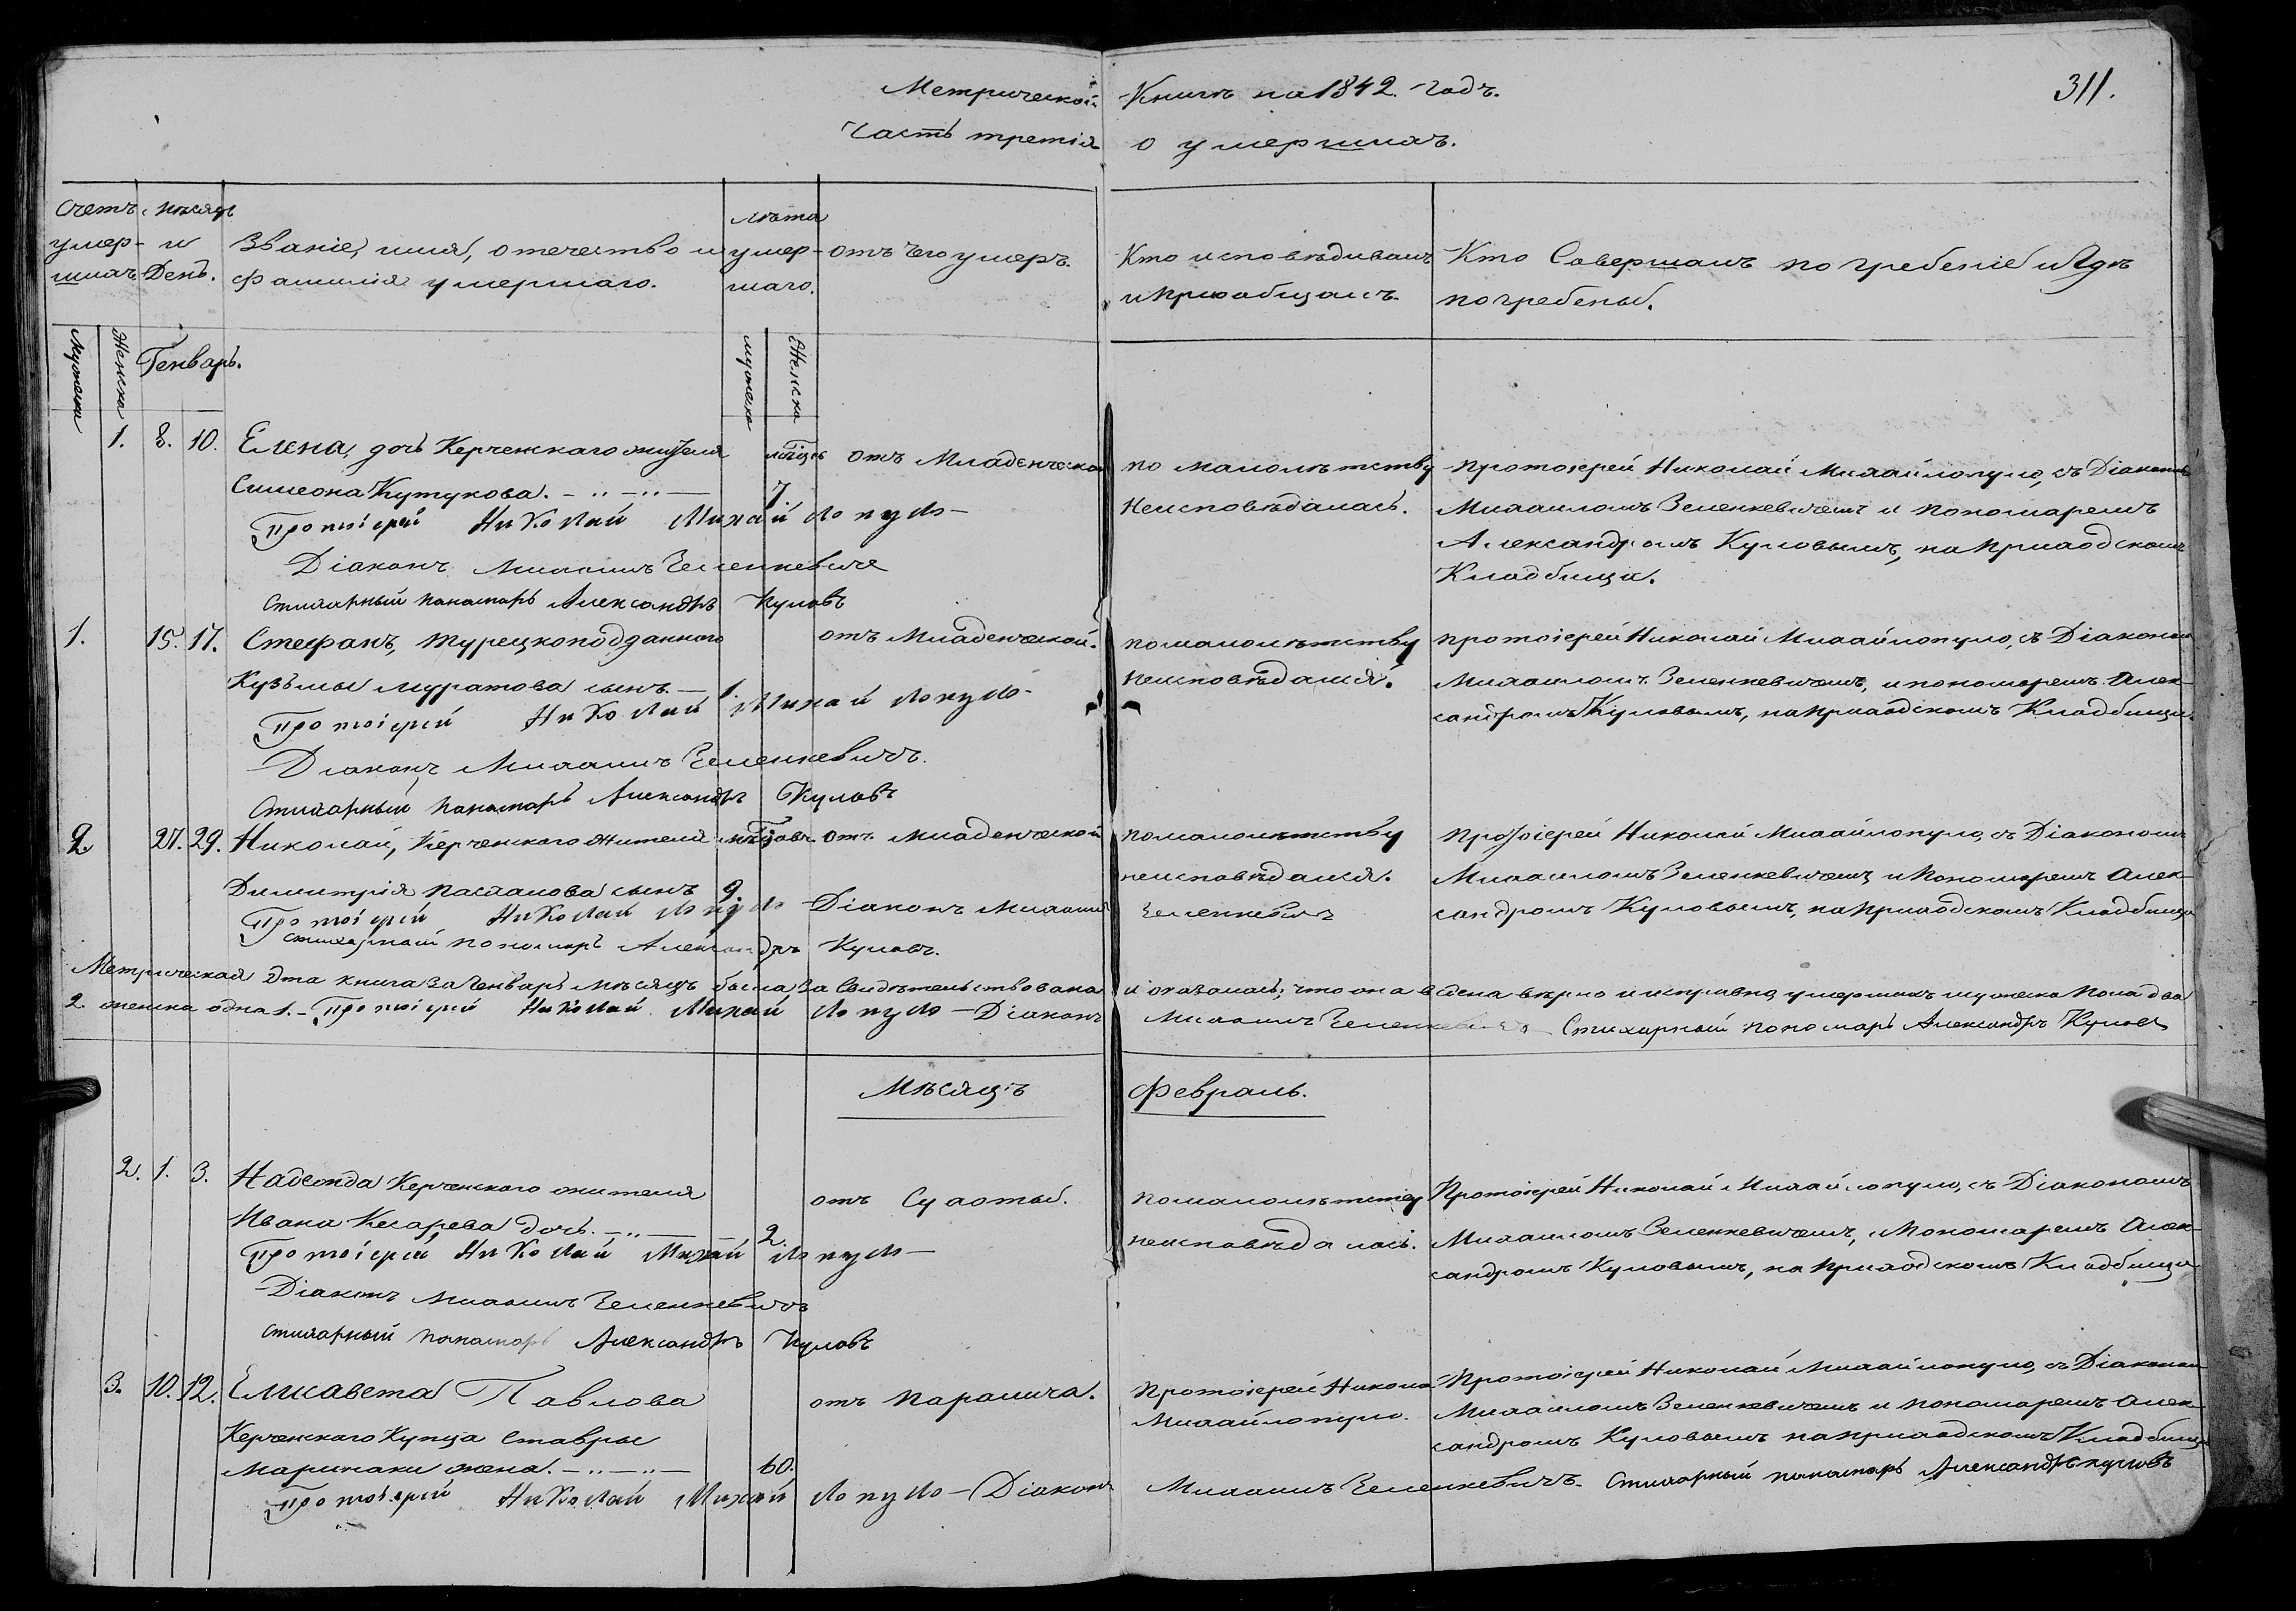 Метрической Книги на 1842. годъ.
311.
Часть третія о умершихъ.
Счетъ умер-шихъ
Мѣсяцъ и День.
Званіе, имя, отечество и фамилія умершаго.
Лѣта умер-шаго.
отъ чего умеръ.
Кто исповѣдывалъ и приобщалъ.
Кто Совершалъ погребеніе и гдѣ погребены.
Мужеска
Женска
Генварь.
мужеска
Женска
1. 8. 10. Елена, дочь Керченскаго жителя мѣсяцъ отъ Младенческой по малолѣтству Протоіерей Николай Михайлопуло, съ Діакономъ
Симеона Кутукова. 7. Неисповѣдалась. Михаиломъ Зеленкевичемъ и пономаремъ
Протоіерей Николай Михайлопуло
Александромъ Куловымъ, на приходскомъ
Діаконъ Михаилъ Зеленкевичъ
Кладбищѣ.
Стихарный панамарь Александръ Куловъ
1. 15. 17. Стефанъ, турецкоподданного отъ Младенческой. по малолѣтству протоіерей Николай Михайлопуло, съ Діакономъ
Кузьмы Муратова сынъ. 1. неисповѣдался. Михаиломъ Зеленкевичемъ, и пономаремъ Алек-
Протоіерей Николай Михайлопуло
сандромъ Куловымъ, на приходскомъ Кладбищѣ.
Діаконъ Михаилъ Зеленкевичъ.
Стихарный панамарь Александръ Куловъ
2 27. 29. Николай, Керченского жителя мѣсяцовъ отъ младенческой по малолѣтству Протоіерей Николай Михайлопуло, съ Діакономъ
Димитрія сынъ 9. неисповѣдался. Михаиломъ Зеленкевичемъ и Пономаремъ Алек-
Протоіерей Николай Діаконъ Михаилъ Зеленкевичъ сандромъ Куловымъ, на приходскомъ Кладбищѣ
Стихарный пономарь Александръ Куловъ.
Метрическая эта книга за Генварь мѣсяцъ была засвидѣтельствована и оказалась, что она ведена вѣрно и исправно, умершихъ мужеска пола два
2. женска одна 1. Протоіерей Николай Михайлопуло Діаконъ Михаилъ Зеленкевичъ Стихарный пономарь Александръ Куловъ
Мѣсяцъ Февраль.
2. 1. 3. Надежда Керченского жителя отъ Сухоты. по малолѣтству Протоіерей Николай Михайлопуло, съ Діакономъ
Ивана Кесарева дочь. 2. неисповѣдалась. Михаиломъ Зеленкевичемъ, и Пономаремъ Алек-
Протоіерей Николай Михайлопуло
сандромъ Куловымъ, на приходскомъ Кладбищѣ
Діаконъ Михаилъ Зеленкевичъ
Стихарный панамарь Александръ Куловъ
3. 10. 12. Елисавета Павлова отъ паралича. Протоіерей Никола Протоіерей Николай Михайлопуло, съ Діакономъ
Михайлопуло. Михаиломъ Зеленкевичемъ и пономаремъ Алек-
Керченскаго Купца Ставры
сандромъ Куловымъ на приходскомъ Кладбищѣ
Маринаки жена. 60.
Протоіерей Николай Михайлопуло Діаконъ Михаилъ Зеленкевичъ. Стихарный панамарь Александръ куловъ